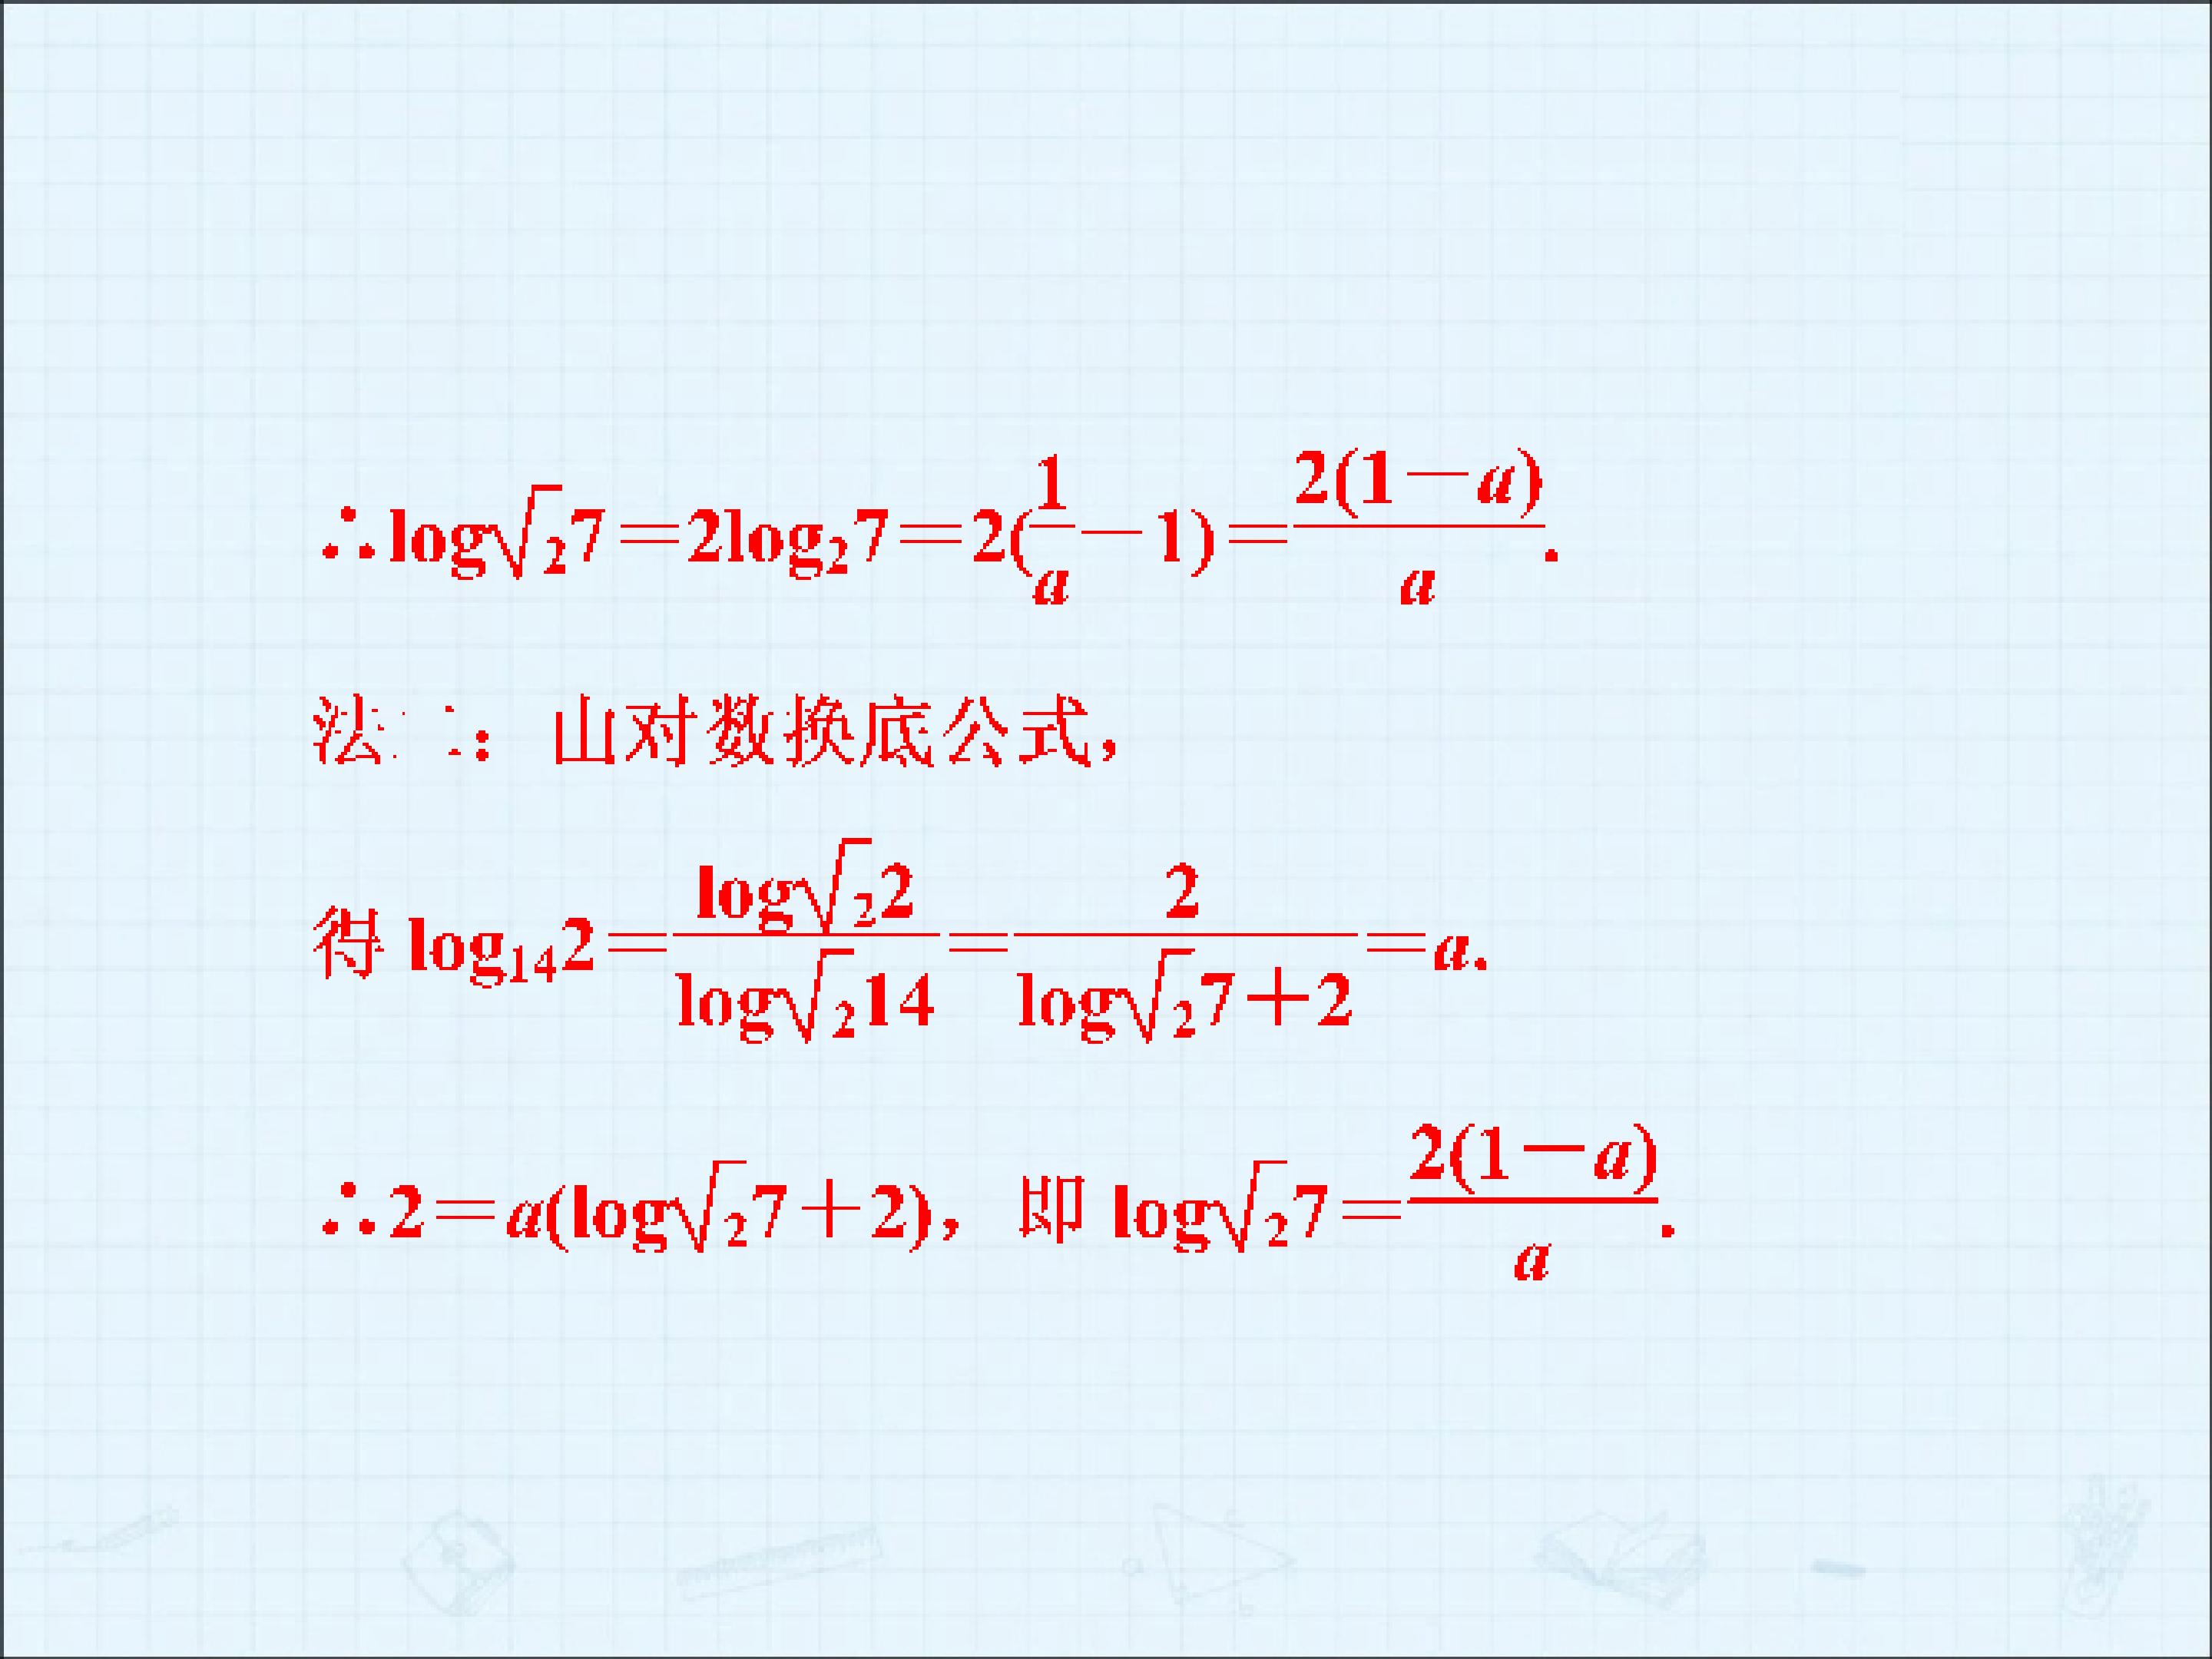 ∴log√2 7=2log₂7=2(1/a-1)=2(1-a)/a.
法二：由对数换底公式，
得 log₁₄2=log√2 2/log√2 14=2/(log√2 7+2)=a.
∴2=a(log√2 7+2)，即 log√2 7=2(1-a)/a.